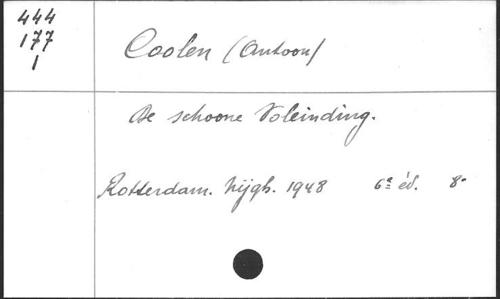 444
177
1
Coolen (Antoon)
De schoone Voleinding.
Rotterdam. Nijgh. 1948 6e éd. 8°